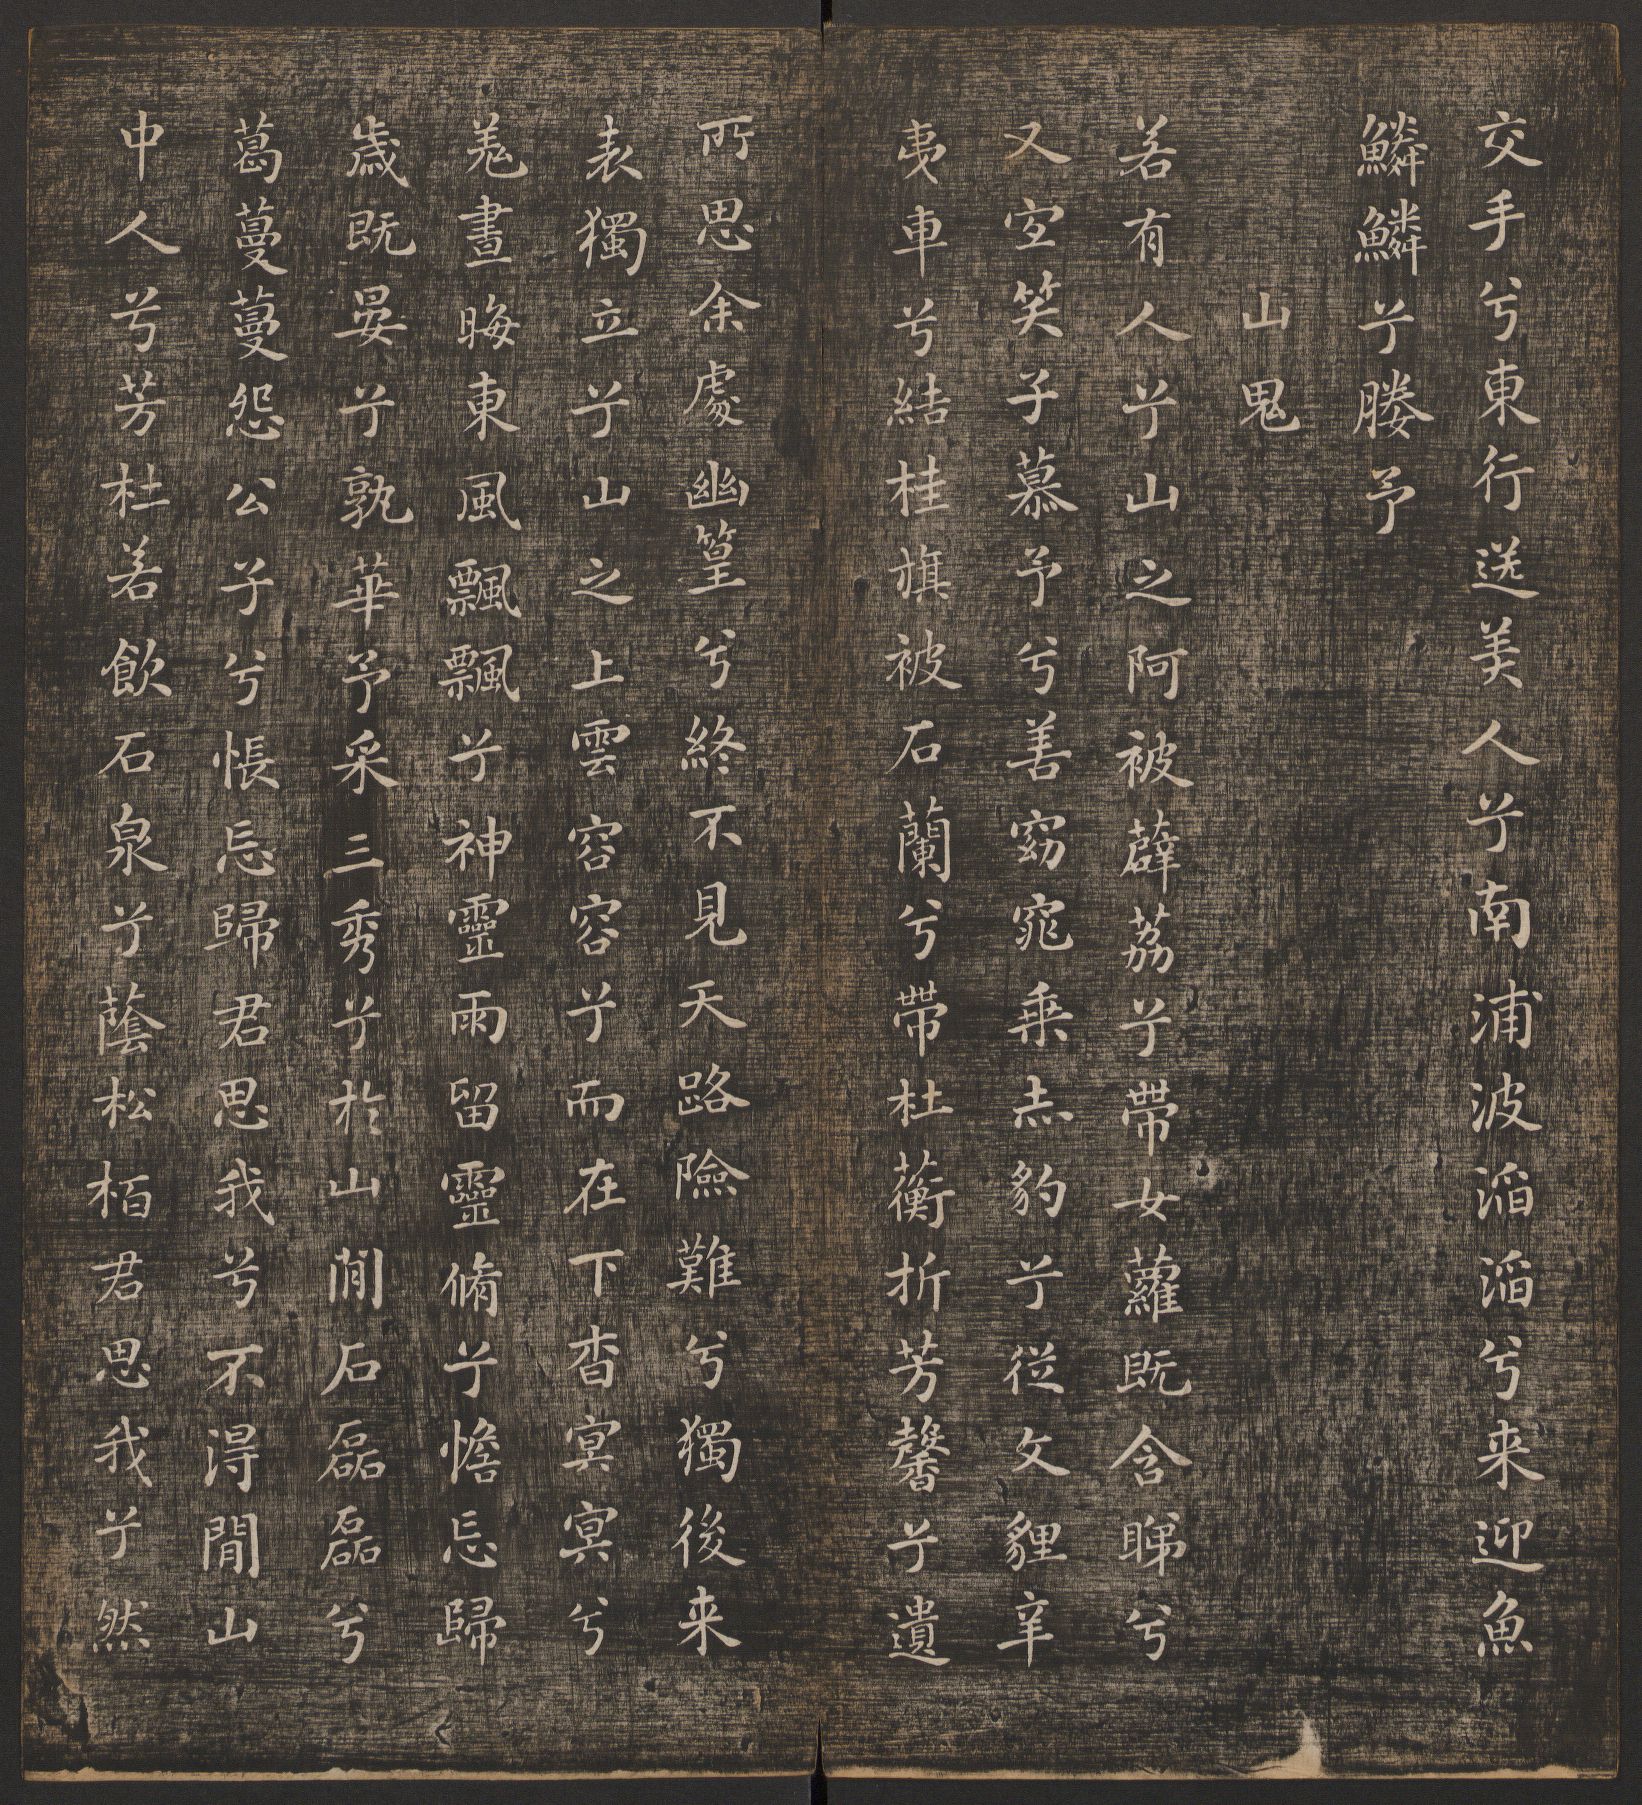 交手兮東行送美人兮南浦波滔滔兮来迎魚
鱗鱗兮媵予
山鬼
若有人兮山之阿被薜荔兮帶女蘿既含睇兮
又宜笑子慕予兮善窈窕乗赤豹兮從文貍辛
夷車兮結桂旗被石蘭兮帶杜蘅折芳馨兮遺
所思余處幽篁兮終不見天路險難兮獨後来
表獨立兮山之上雲容容兮而在下杳冥冥兮
羌晝晦東風飄飄兮神靈雨留靈脩兮憺忘歸
歳既晏兮孰華予采三秀兮於山間石磊磊兮
葛蔓蔓怨公子兮悵忘歸君思我兮不得閒山
中人兮芳杜若飲石泉兮蔭松栢君思我兮然